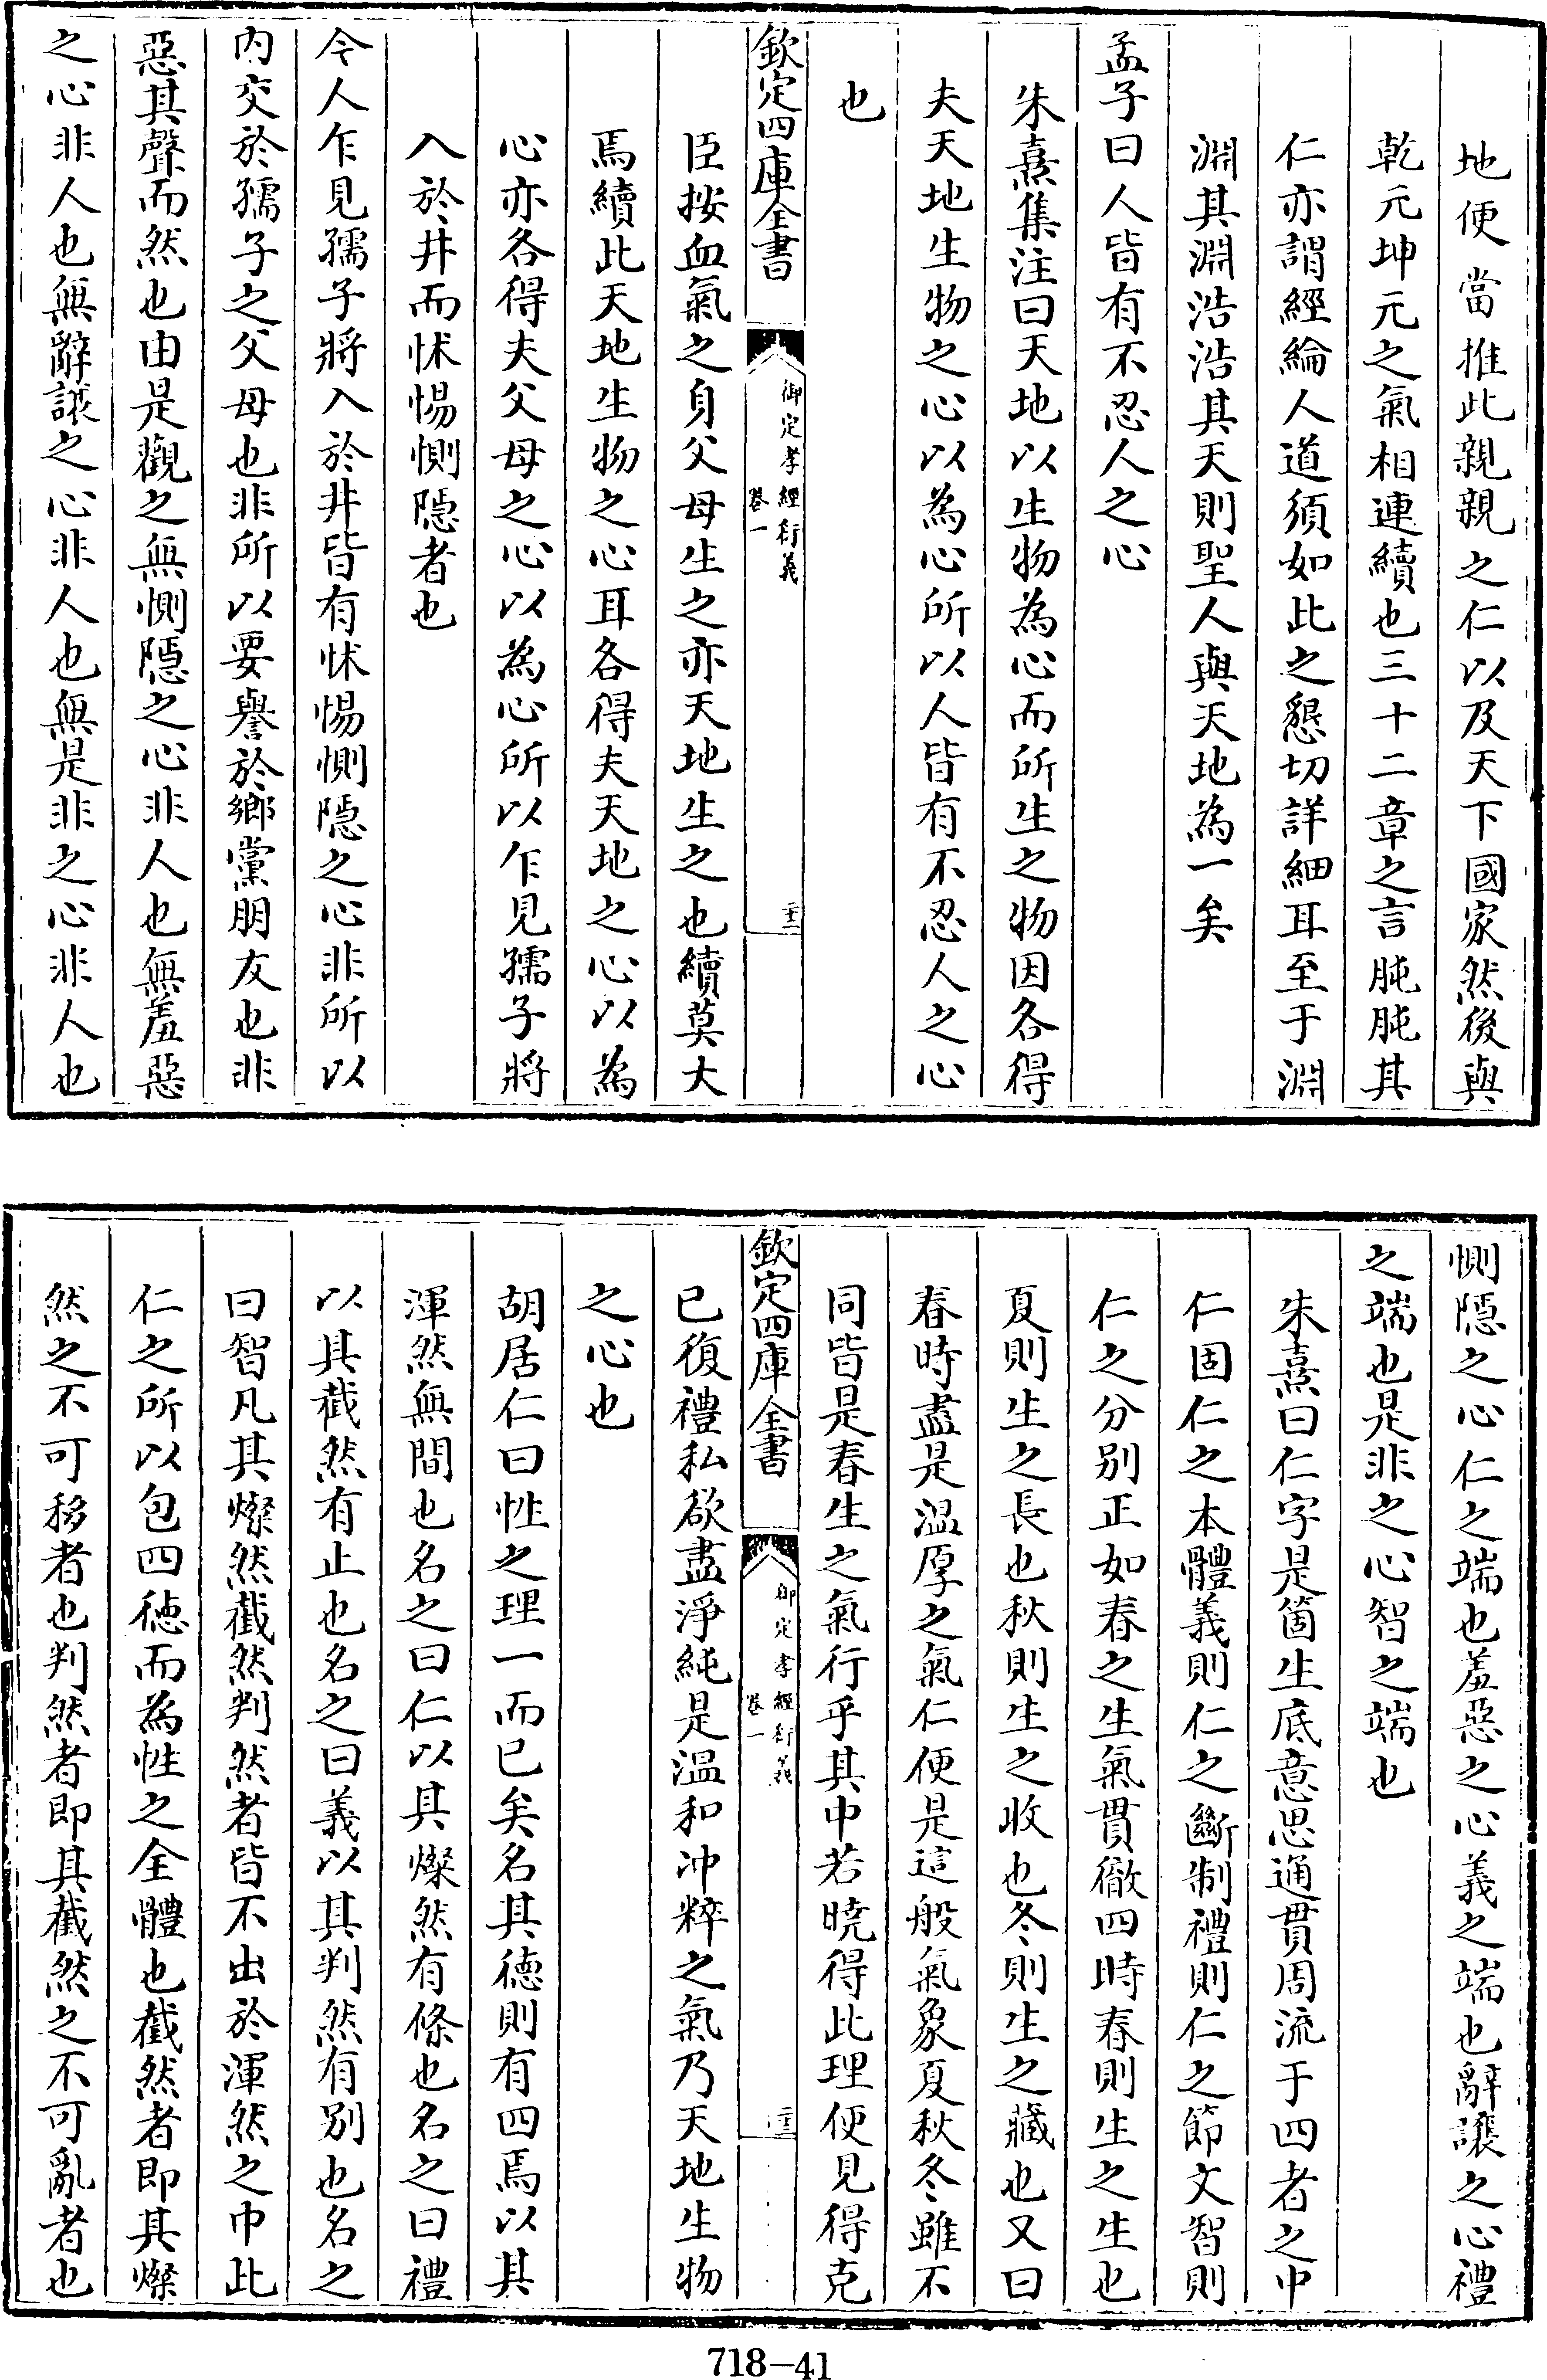 地便當推此親親之仁以及天下國家然後與
乾元坤元之氣相連續也三十二章之言肫肫其
仁亦謂經綸人道須如此之懇切詳細耳至于淵
淵其淵浩浩其天則聖人與天地為一矣
孟子曰人皆有不忍人之心
朱熹集注曰天地以生物為心而所生之物因各得
夫天地生物之心以為心所以人皆有不忍人之心
也
欽定四庫全書
御定孝經衍義
卷一
臣按血氣之身父母生之亦天地生之也續莫大
焉續此天地生物之心耳各得夫天地之心以為
心亦各得夫父母之心以為心所以乍見孺子將
入於井而怵惕惻隱者也
今人乍見孺子將入於井皆有怵惕惻隱之心非所以
內交於孺子之父母也非所以要譽於鄉黨朋友也非
惡其聲而然也由是觀之無惻隱之心非人也無羞惡
之心非人也無辭讓之心非人也無是非之心非人也
惻隱之心仁之端也羞惡之心義之端也辭讓之心禮
之端也是非之心智之端也
朱熹曰仁字是箇生底意思通貫周流于四者之中
仁固仁之本體義則仁之斷制禮則仁之節文智則
仁之分別正如春之生氣貫徹四時春則生之生也
夏則生之長也秋則生之收也冬則生之藏也又曰
春時盡是溫厚之氣仁便是這般氣象夏秋冬雖不
同皆是春生之氣行乎其中若曉得此理便見得克
欽定四庫全書
御定孝經衍義
卷一
已復禮私欲盡淨純是溫和沖粹之氣乃天地生物
之心也
胡居仁曰性之理一而已矣名其德則有四焉以其
渾然無間也名之曰仁以其燦然有條也名之曰禮
以其截然有止也名之曰義以其判然有別也名之
曰智凡其燦然截然判然者皆不出於渾然之中此
仁之所以包四德而為性之全體也截然者即其燦
然之不可移者也判然者即其截然之不可亂者也
718-41